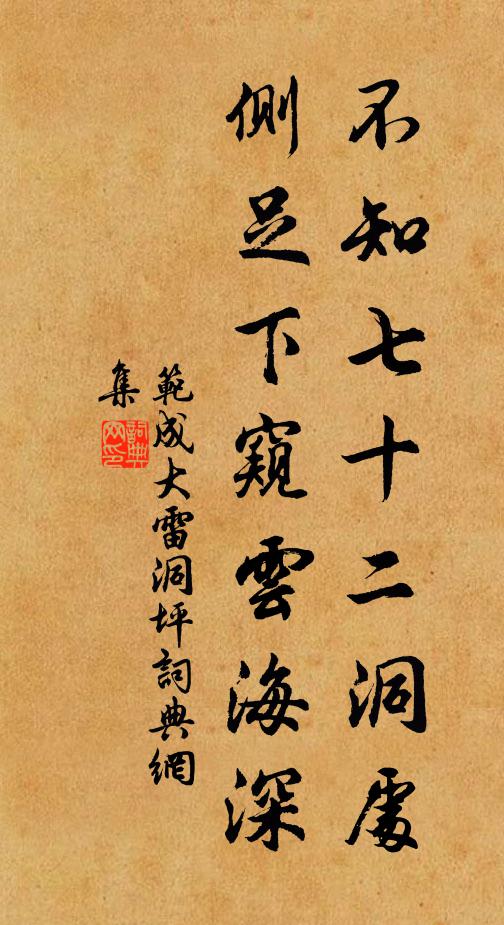 不知七十二洞處
側足下窺雲海深
範成大雷洞坪詞典網
集
詞典網印